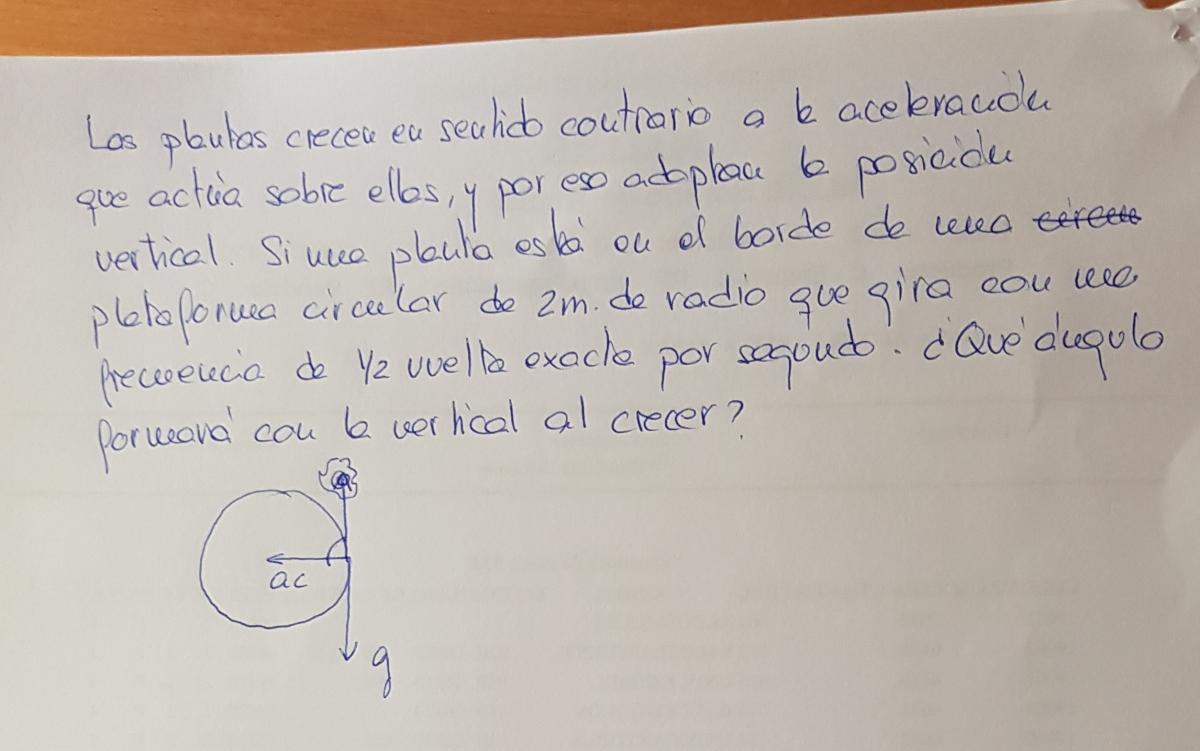 Las plantas crecen en sentido contrario a la aceleración
que actúa sobre ellas, y por eso adoptan la posición
vertical. Si una planta está en el borde de una
plataforma circular de 2m. de radio que gira con una
frecuencia de 1/2 vuelta exacta por segundo. ¿Qué ángulo
formará con la vertical al crecer?
ac
g